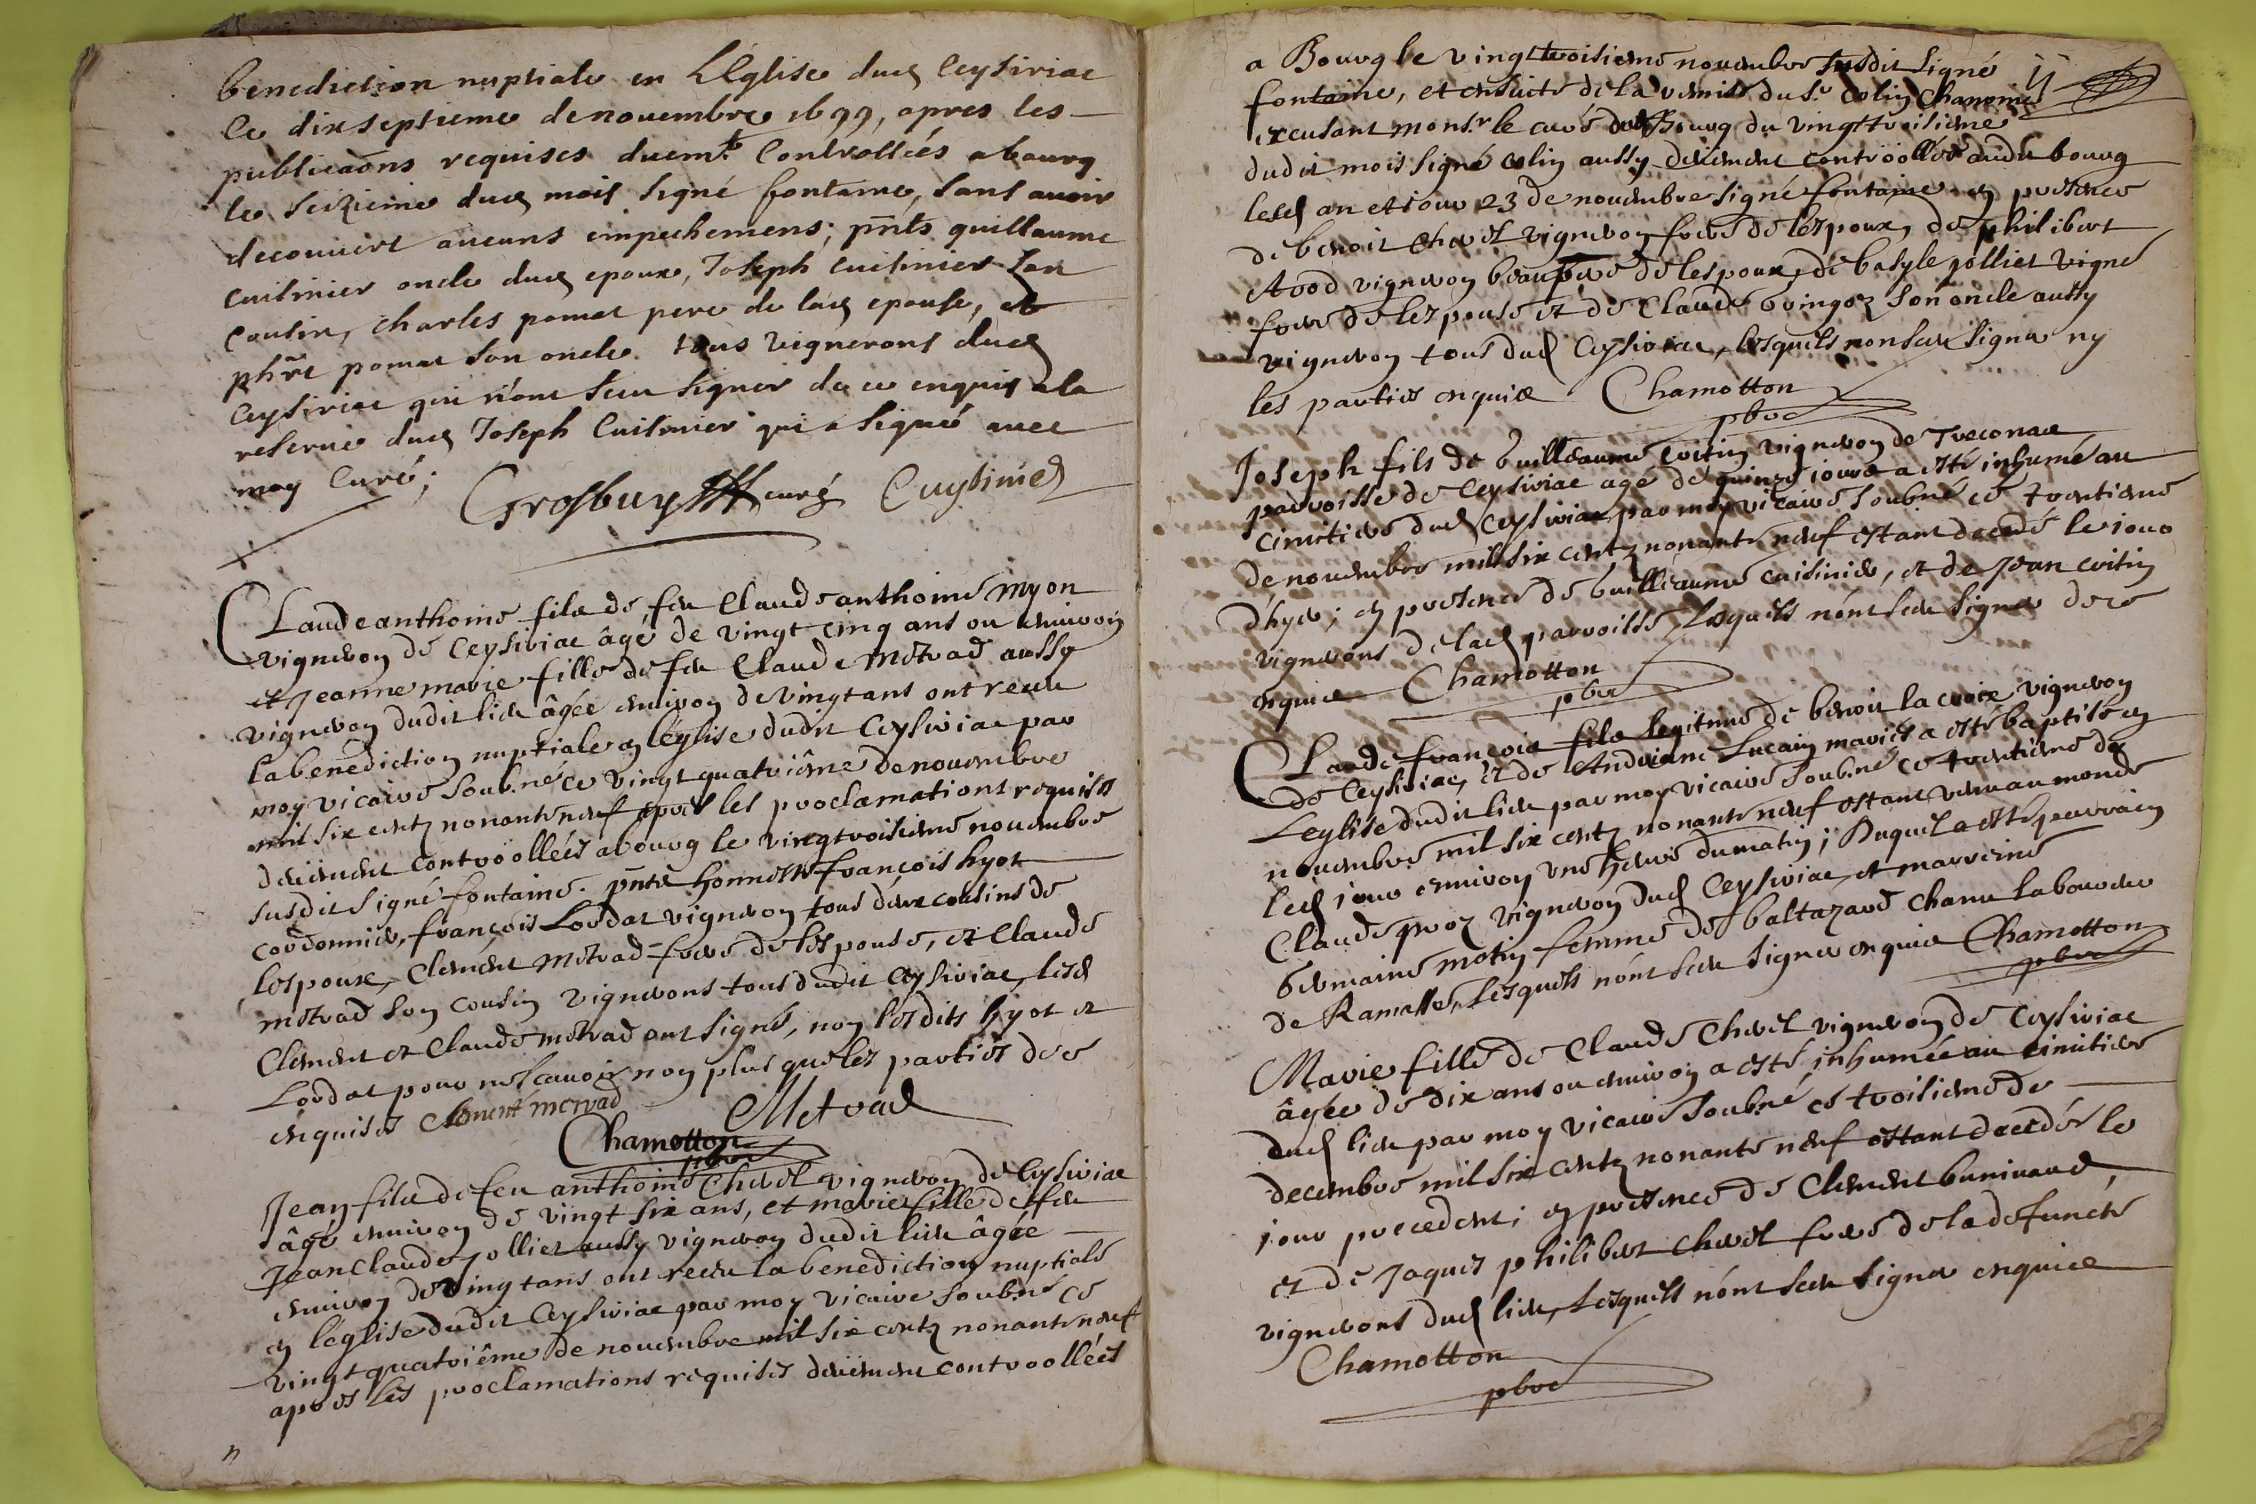 benediction nuptiale en L'Eglise dud Ceysiriac
le dix septieme de novembre 1699, apres les
publicaons requises duem.t Controllées a bourg
le seizieme dud mois signé fontaine, sans avoir
decouvert aucuns empechemens; pnts guillaume
cuisinier oncle dud epoux, Joseph cuisinier son
cousin, charles pomat pere de lad epouse, et
phrt pomat son oncle tous Vignerons dud
Ceysiriac qui n'ont sceu signer de ce enquis a la
reserve dud Joseph Cuisinier qui a signé avec
moy Curé;
Grosbuy curé Cuysinier
Claudeanthoine fils de feu Claudeanthoine myon
vigneron de Ceysiriac âgé de vingt cinq ans ou environ
et Jeanne marie fille de feu Claude Metrad aussy
vigneron dudit lieu âgée environ de vingt ans ont receu
la benediction nuptiale en léglise dudit Ceysiriac par
moy vicaire soub.né ce vingt quatriême de novembre
mil six centz nonante neuf apres les proclamations requises
deüement controollées a bourg le vingt troisieme novembre
susdit signé fontaine. pnts honneste françois hyot
cordonnier, françois Lordat vigneron tous deux cousins de
lespoux, Clement Metrad frere de lespouse, et Claude
metrad son cousin vignerons tous dudit Ceysiriac, lesd
Clement et Claude metrad ont signé, non lesdits hyot et
Lordat pour ne scavoir non plus que les parties de ce
enquises Clement metrad Metrad
Chamotton
pbre
Jean fils de feu anthoine Chevet vigneron de Ceysiriac
âgé environ de vingt six ans, et marie fille de feu
Jean Claude Jolliet aussy vigneron dudit lieu âgée
environ de vingt ans ont receu la benediction nuptiale
en léglise dudit Ceysiriac par moy vicaire soub.né ce
vingt quatriême de novembre mil six centz nonante neuf
apres les proclamations requises deüement controollées
a Bourg le vingt troisieme novembre susdit signé
fontaine, et ensuite de la remise du s.r Colin Chanoine
excusant mons.r le curé de Bourg du vingt troisieme
dudit mois signé Colin aussy deüement controollée audit bourg
lesd an et iour 23 de novembre signé fontaine en presence
de benoit Chevet vigneron frere de lespoux, de philibert
Avod vigneron beaupere de lespoux, de basyle jolliet vigne
frere de lespouse et de Claude son oncle aussy
vigneron tous dud Ceysiriac, lesquels non sceu signer ny
les parties enquis Chamotton
pbre
Joseph fils de Guilleaume Coitin vigneron de Treconac
parroisse de Ceysiriac agé de quinze iours a esté inhumé au
cimitiere dud Ceysiriac par moy vicaire soubné ce trentieme
de novembre mil six centz nonante neuf estant decedé le iour
d'hyer; en presence de Guilleaume cuisinier, et de Jean coitin
vignerons de lad parroisse, Lesquels nont sceu signer de ce
enquis Chamotton
pbre
Claude françois fils legitime de benoit la croix vigneron
de Ceysiriac, et de Andreanne Lucain mariés a esté baptisé en
Leglise dudit lieu par moy vicaire soub.né ce trentieme de
novembre mil six centz nonante neuf estant venu au monde
led iour environ une heure du matin; Duquel a esté parrain
Claude vigneron dud Ceysiriac, et marreine
Germaine motin femme de baltazard chanu laboureur
de Ramasse, Lesquels nont sceu signer enquis Chamotton
pbre
Marie fille de Claude Chevet vigneron de Ceysiriac
âgée de dix ans ou environ a esté inhumée au cimitiere
dud lieu par moy vicaire soubné ce troisieme de
decembre mil six centz nonante neuf estant decedée le
iour precedent; en presence de Clement bunivard,
et de Jaques philibert chevet frere de la defuncte
vignerons dud lieu, Lesquels nont sceu signer enquis
Chamotton
pbre